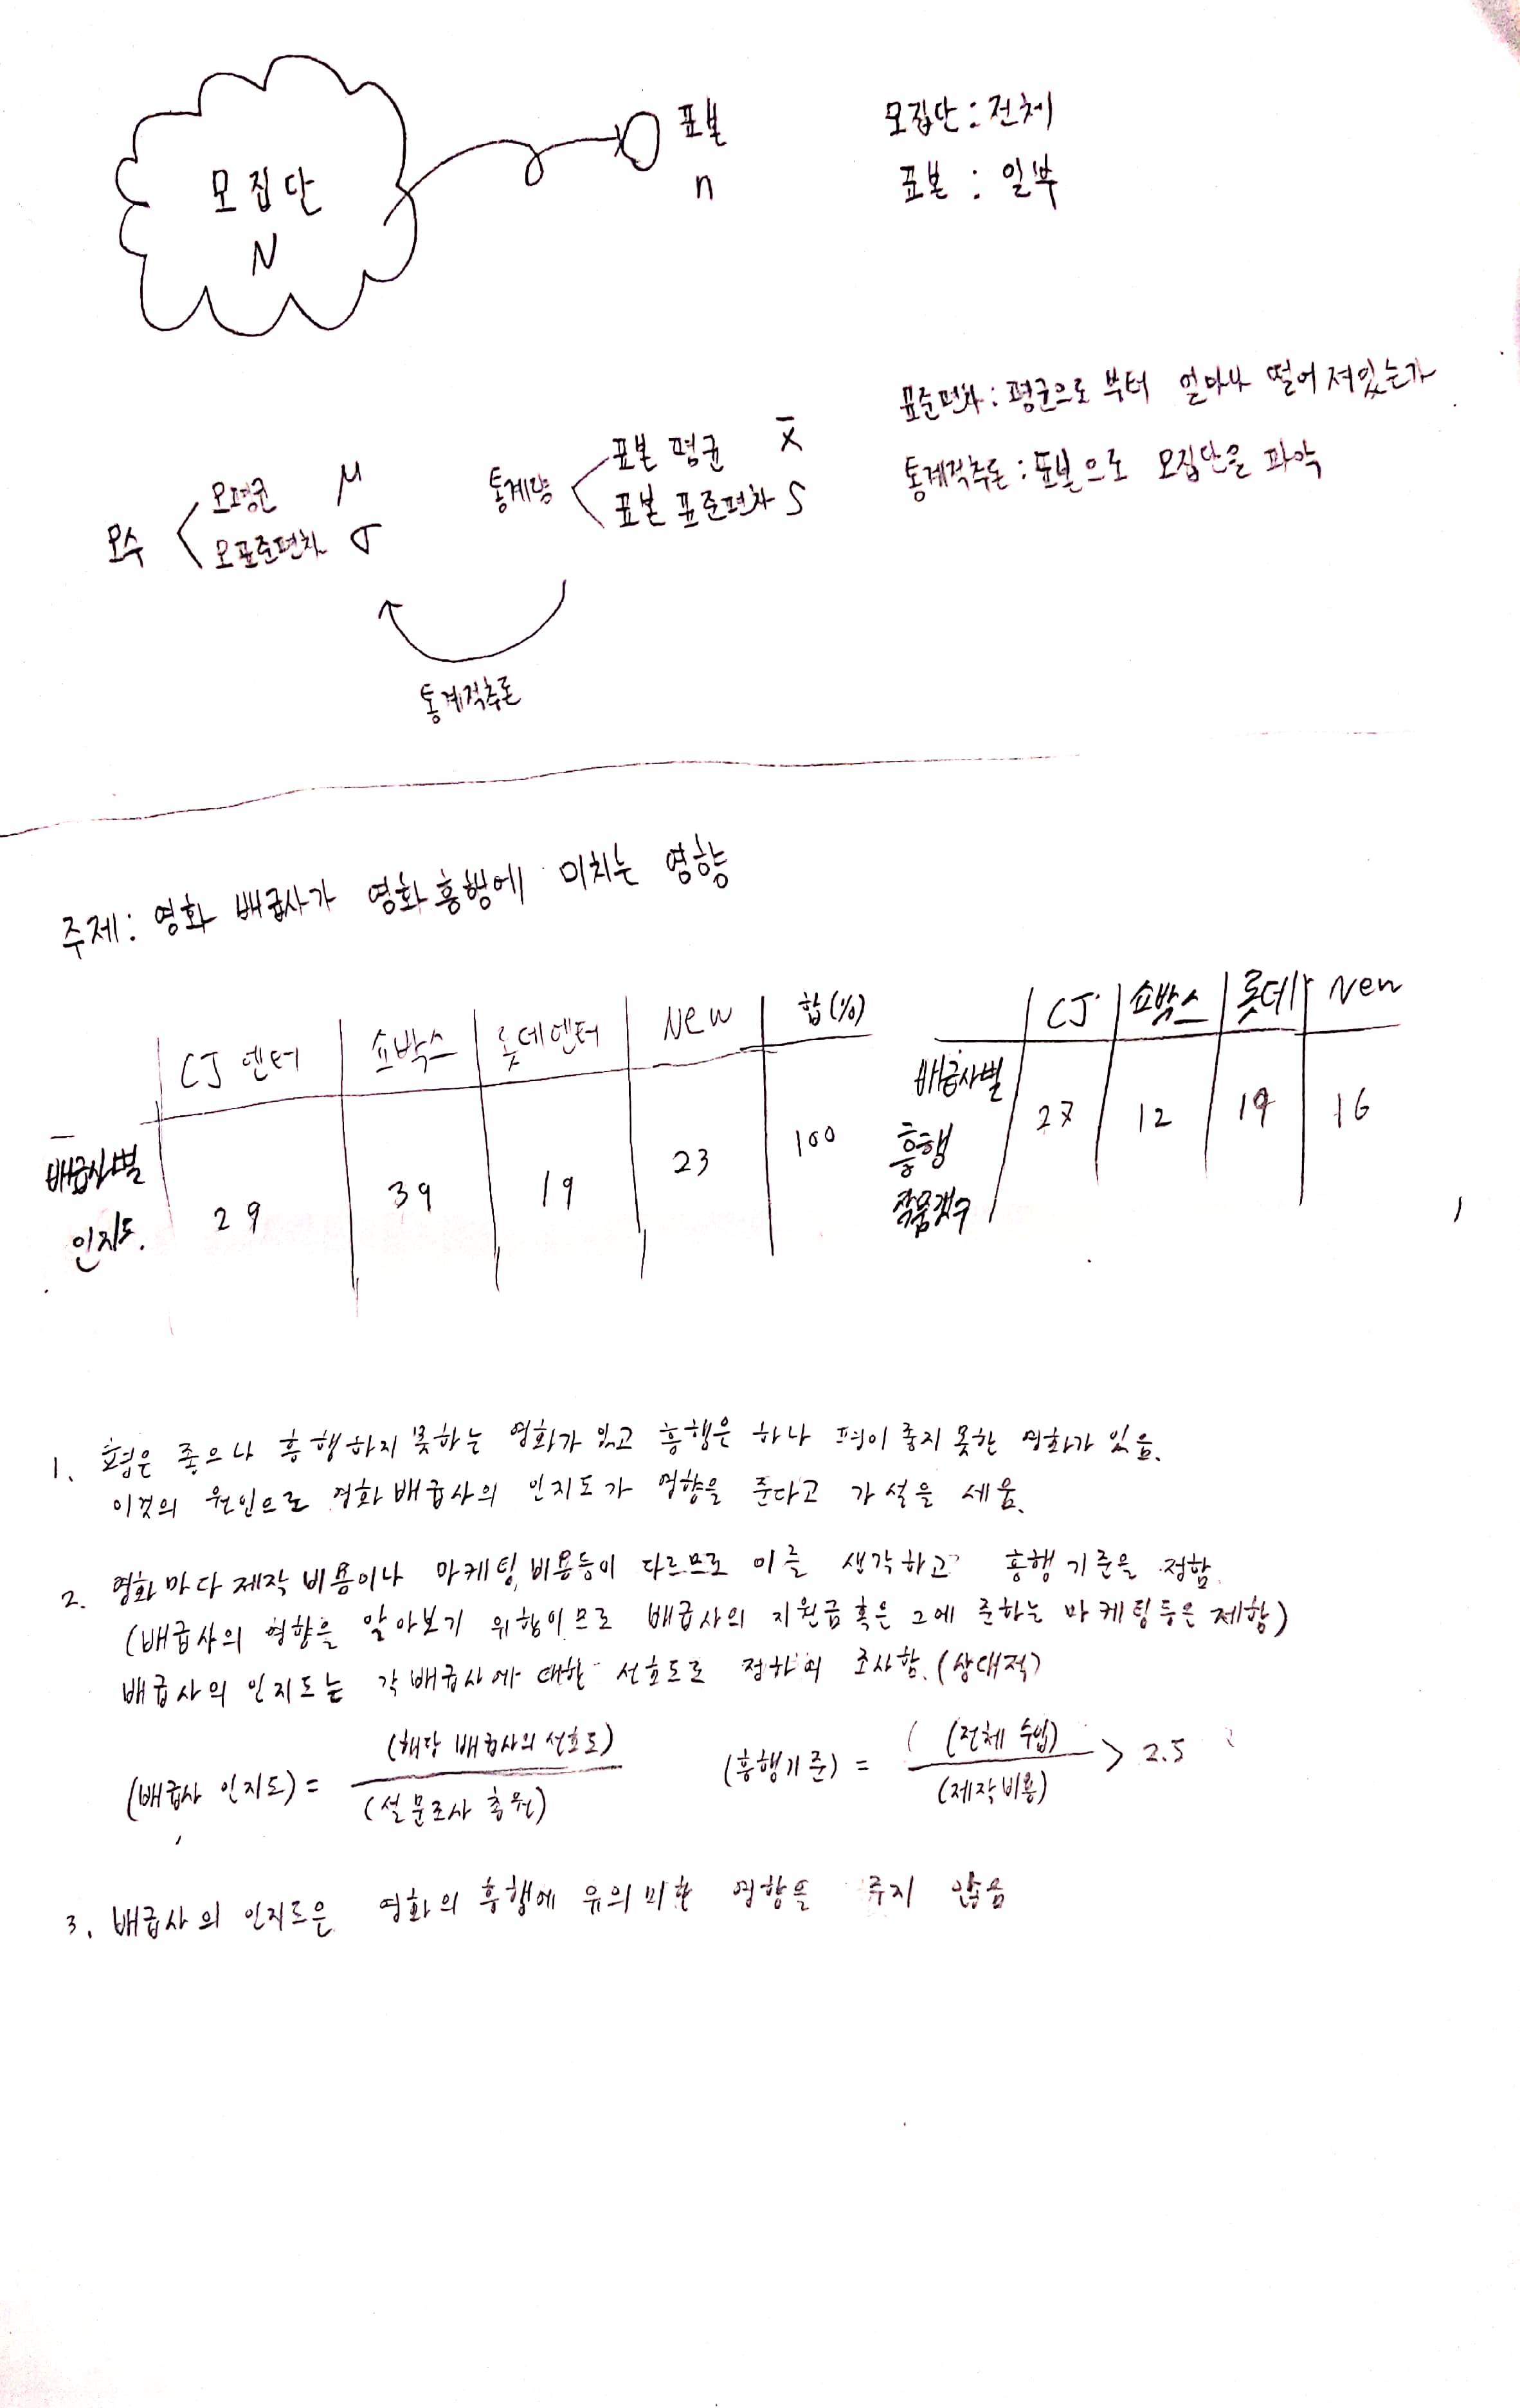 모집단
N
표본
n
모집단 : 전체
표본 : 일부
표준편차 : 평균으로 부터 얼마나 떨어져있는가
통계적추론 : 표본으로 모집단을 파악
모수
모평균 μ
모표준편차 σ
통계량
표본 평균 x̄
표본 표준편차 S
통계적추론
주제 : 영화 배급사가 영화흥행에 미치는 영향
CJ 엔터 쇼박스 롯데엔터 New 합(%)
배급사별 인지도. 29 39 19 23 100
CJ 쇼박스 롯데 New
배급사별 흥행 작품갯수 27 12 19 16
1. 평은 좋으나 흥행하지 못하는 영화가 있고 흥행은 하나 평이 좋지 못한 영화가 있음.
이것의 원인으로 영화배급사의 인지도가 영향을 준다고 가설을 세움.
2. 영화마다 제작비용이나 마케팅 비용등이 다르므로 이를 생각하고 흥행기준을 정함.
(배급사의 영향을 알아보기 위함이므로 배급사의 지원금 혹은 그에 준하는 마케팅등은 제함)
배급사의 인지도는 각 배급사에 대한 선호도로 정하여 조사함. (상대적)
(배급사 인지도) = (해당 배급사의 선호도) / (설문조사 총원)
(흥행기준) = (전체 수입) / (제작비용) > 2.5
3. 배급사의 인지도은 영화의 흥행에 유의미한 영향을 주지 않음